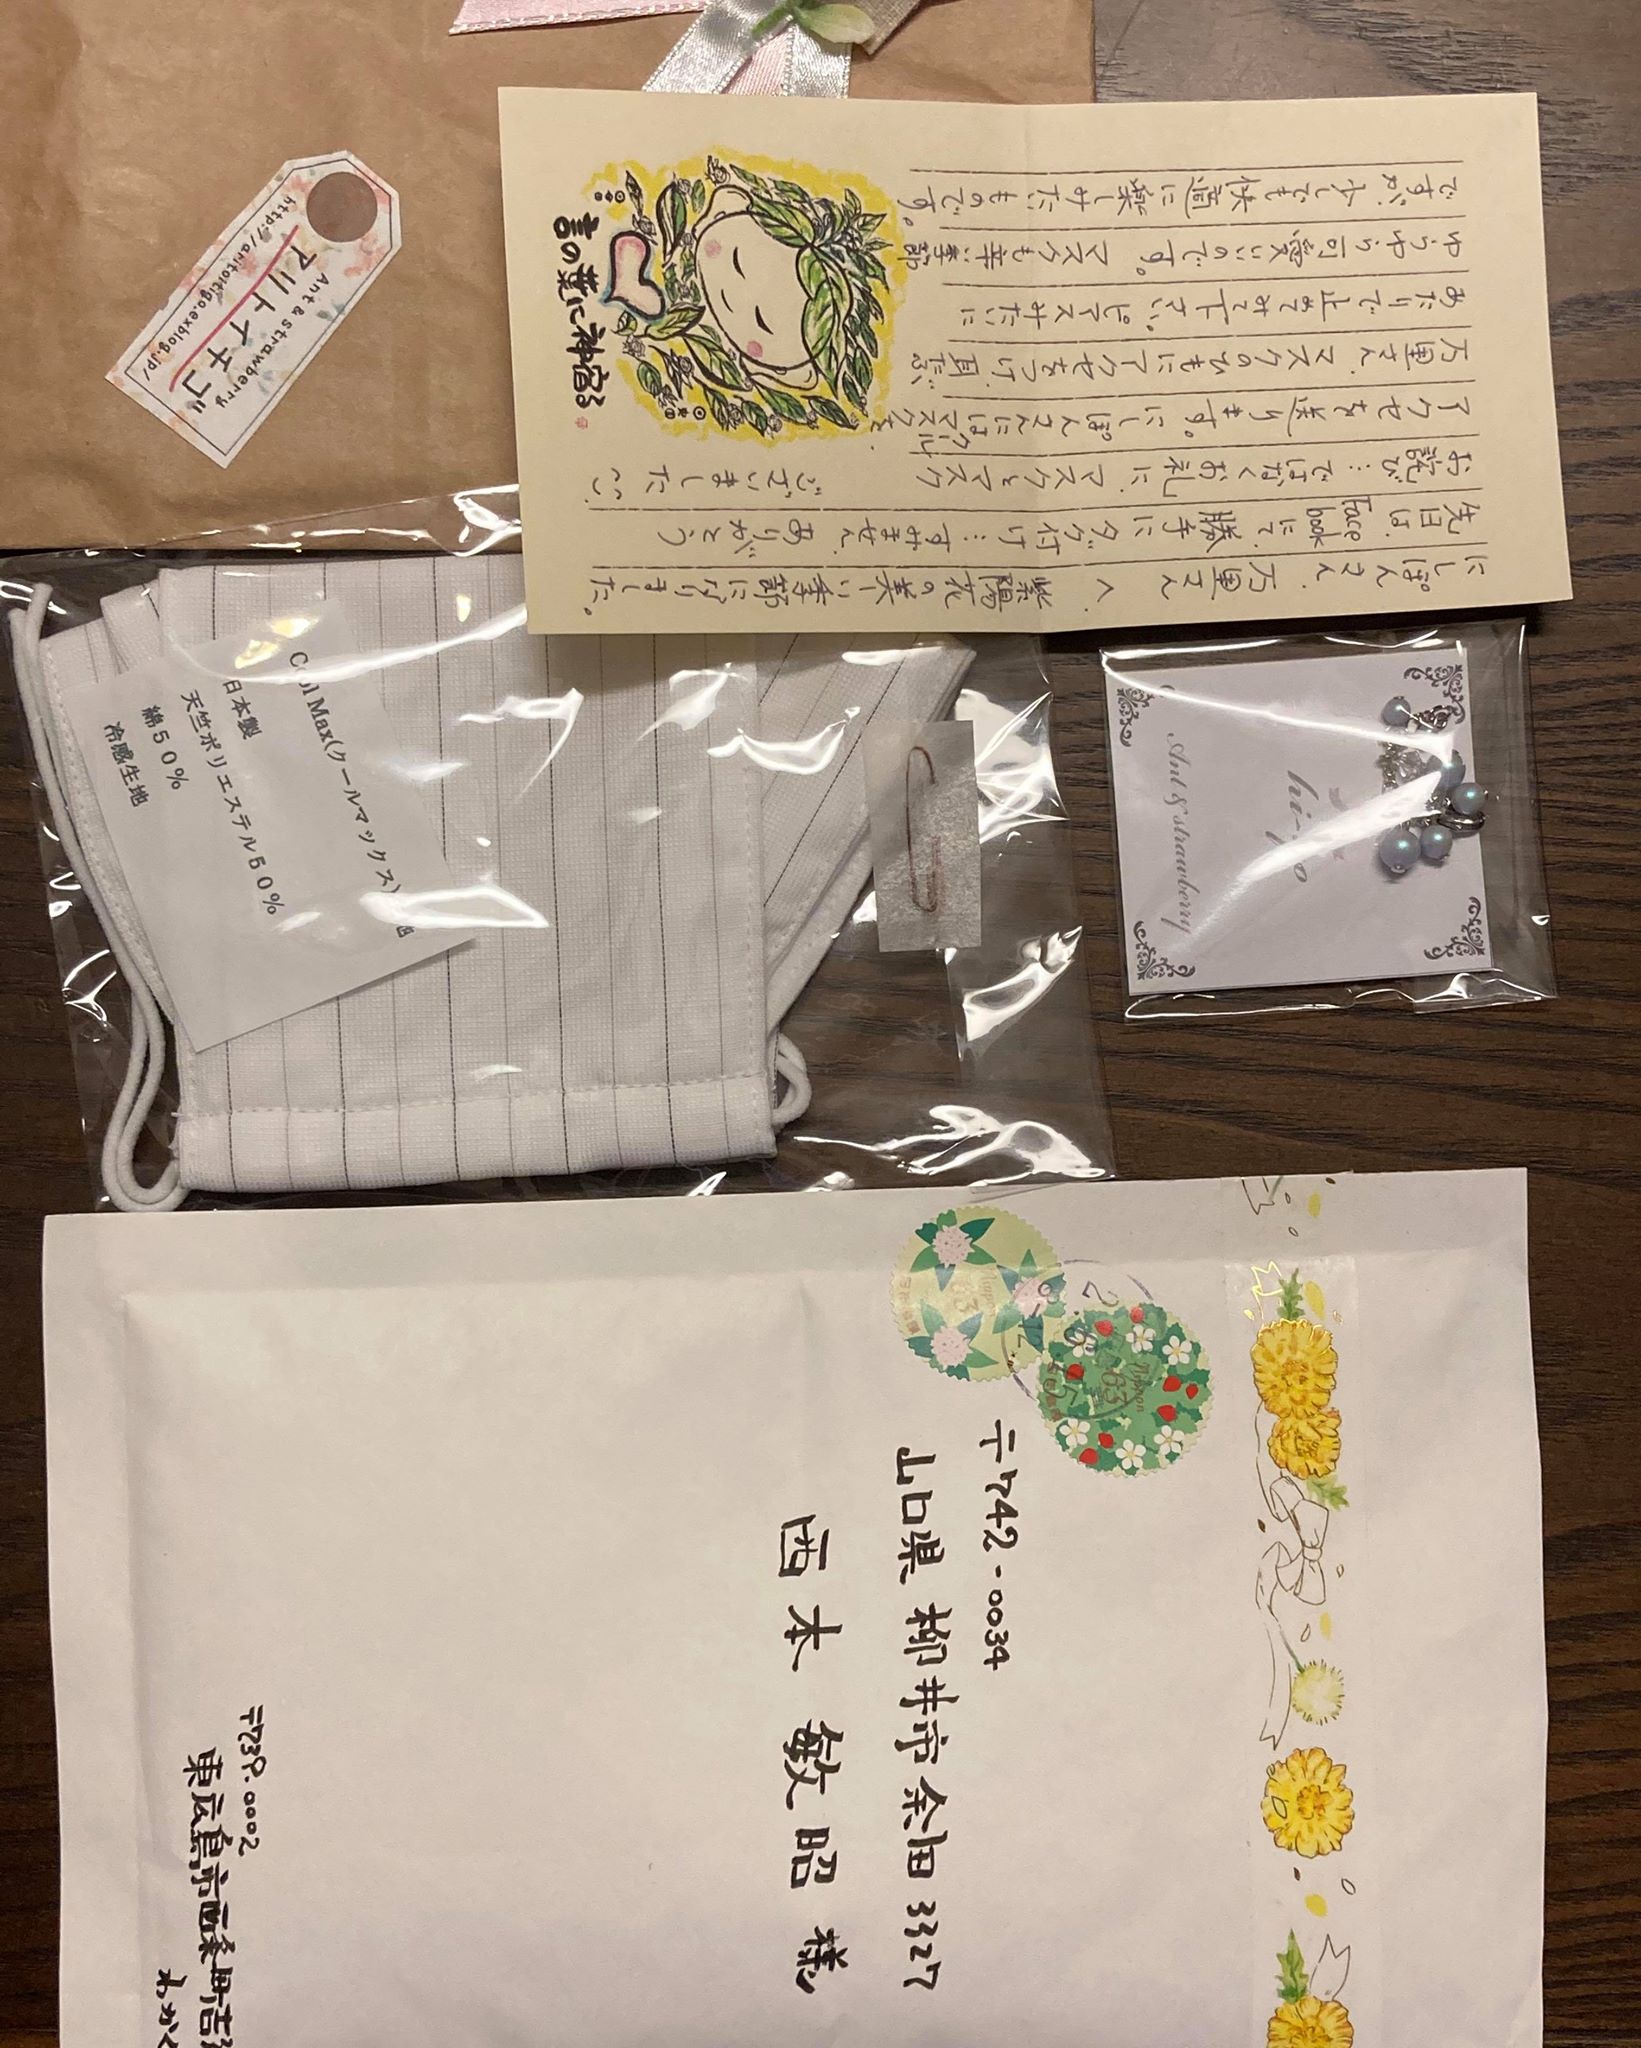 http://aritoitigo.exblog.jp/
Ant & strawberry
アリトイチゴ
言の葉に神宿る
にしぽんさん、万里さんへ
紫陽花の美しい季節になりました。
先日は、Facebookにて、勝手にタグ付け…すみません、ありがとう
ございました
お詫び…ではなくお礼に、マスクとマスク
アクセを送ります。にしぽんさんにはマスクを
クル
万里さん、マスクのひもにアクセをつけ、耳たぶ
あたりで止めてみて下さい。ピアスみたいに
ゆらゆら可愛いのです。マスクも辛い季節
ですが、少しでも快適に楽しみたいものです。
Cool Max(クールマックス)
日本製
天竺ポリエステル50%
綿50%
冷感生地
hi-po
Ant & strawberry
Nippon
63
Nippon
63
〒742-0034
山口県柳井市余田3327
西本敏昭様
〒739-0002
東広島市西条町吉
わかく